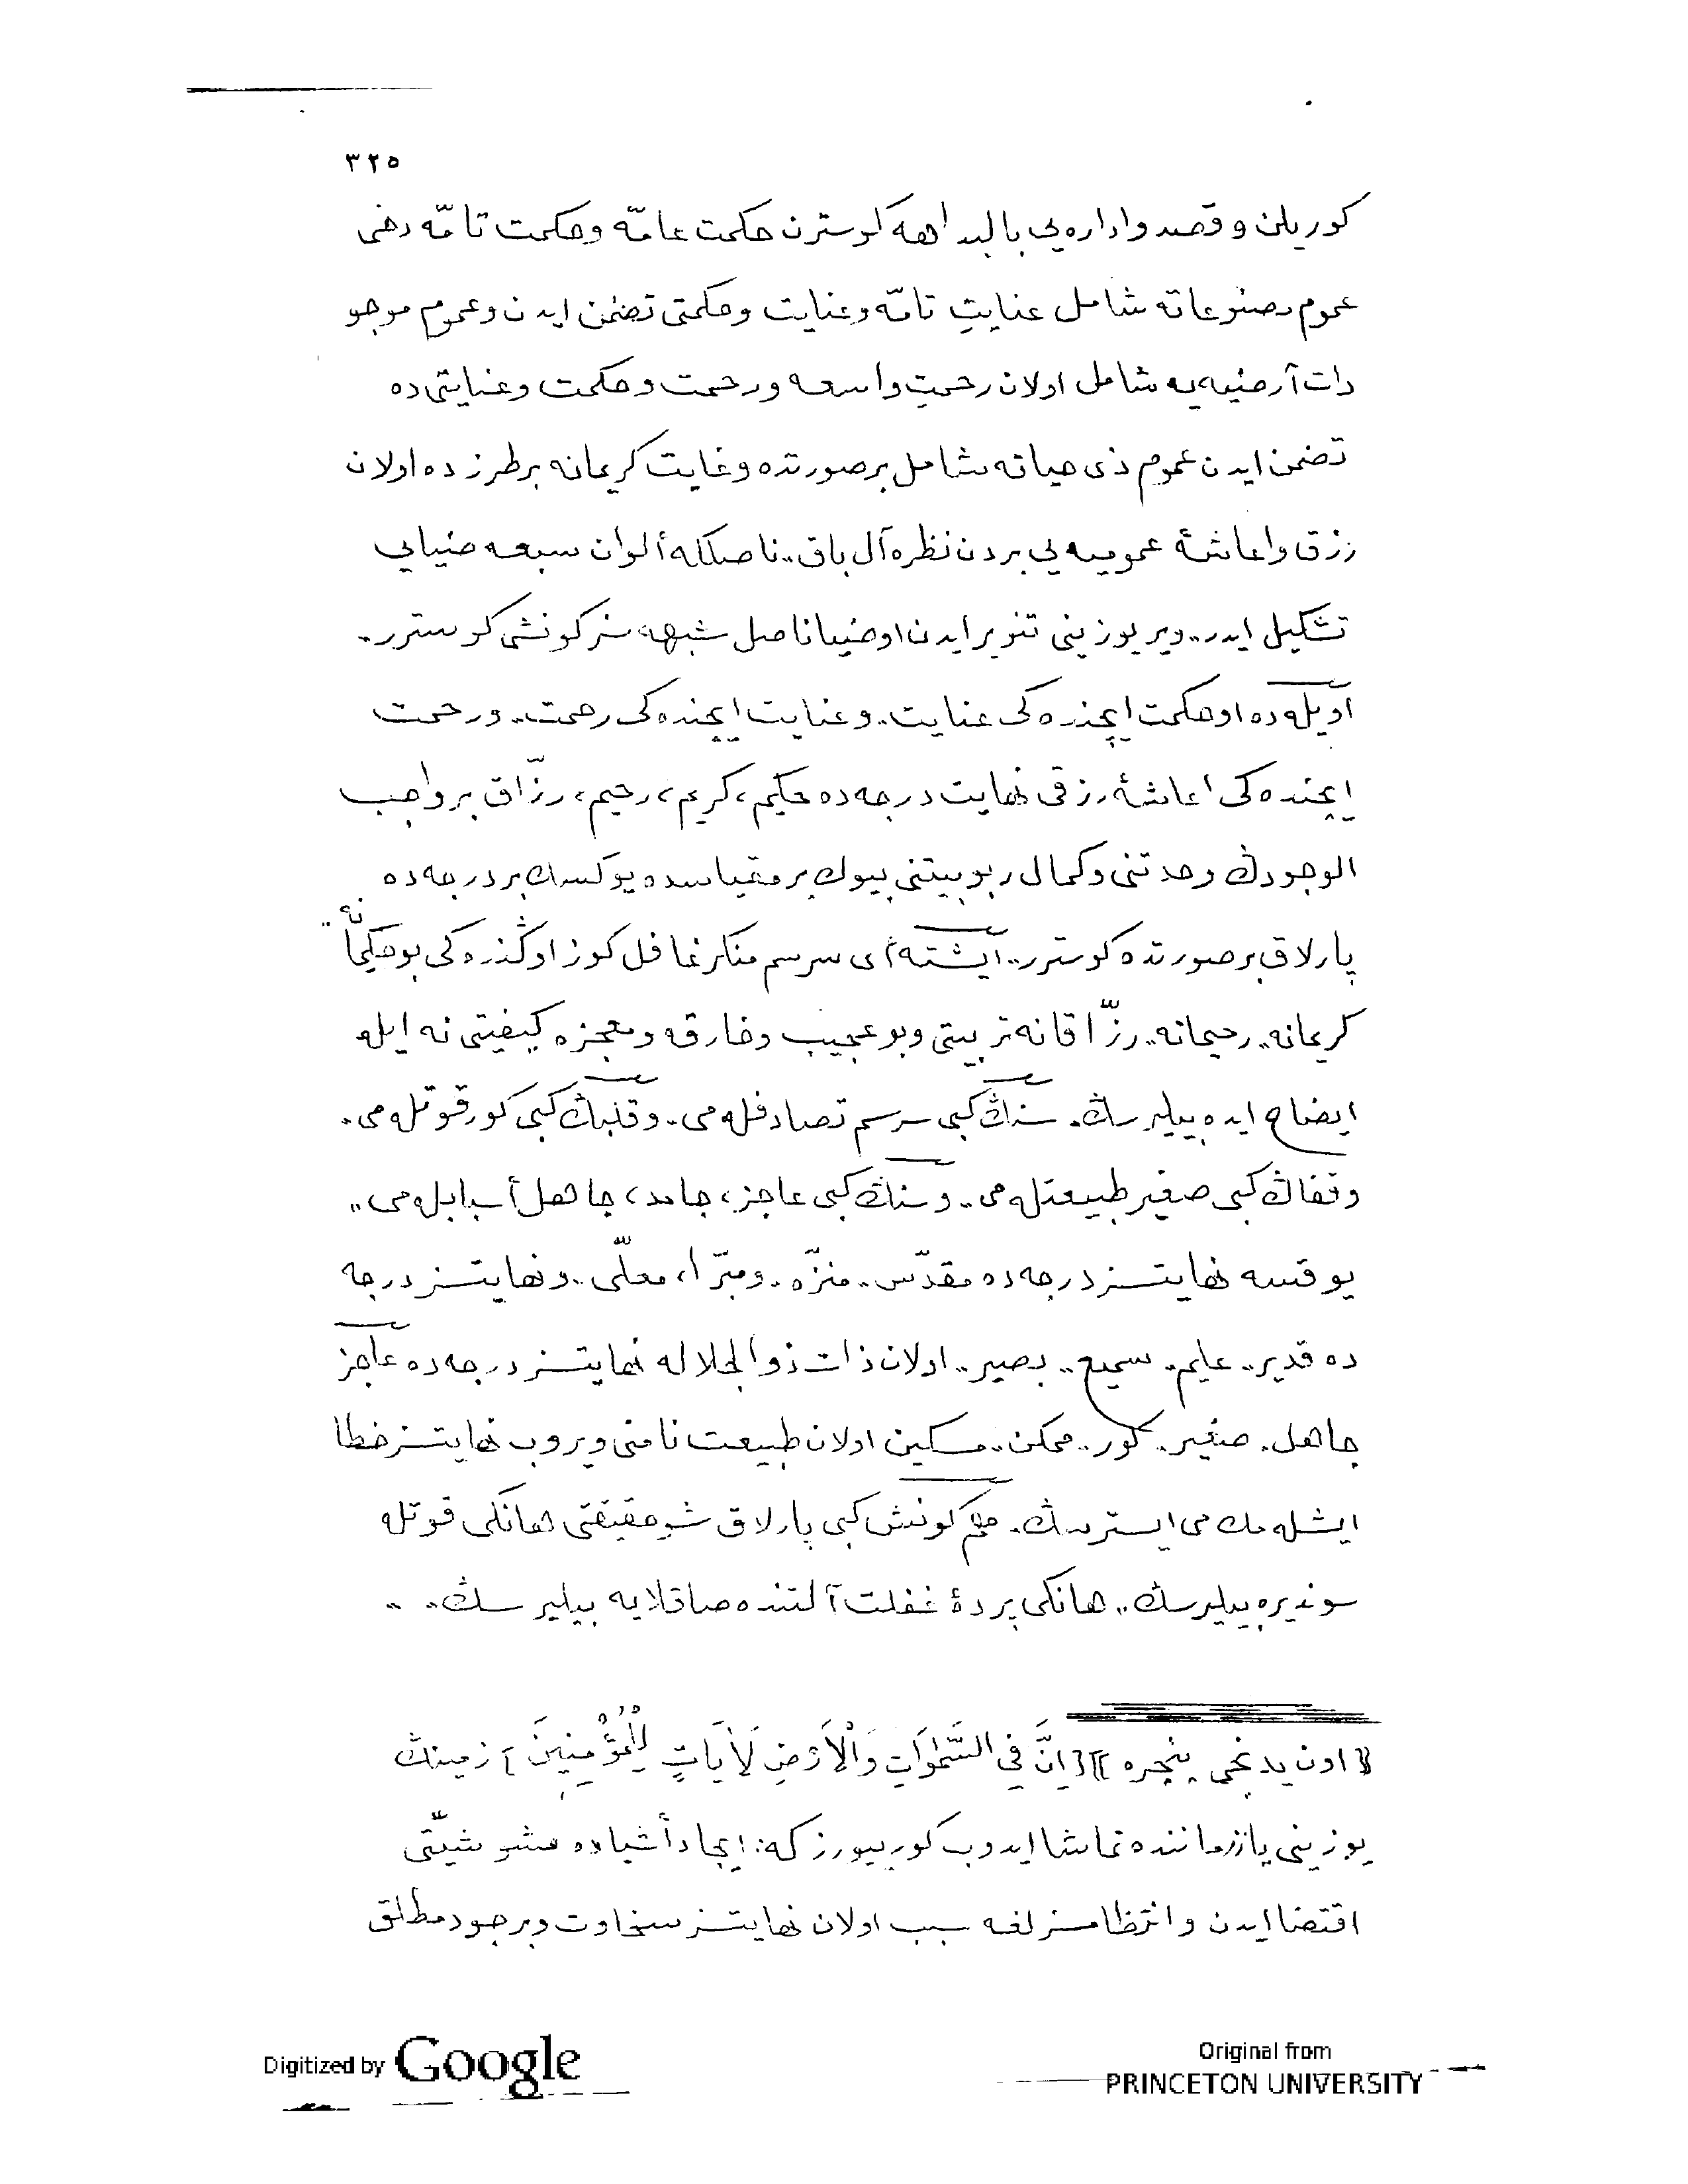 ٣٢٥
كوريلن و قصد و اداره‌يى بالبداهه كوسترن حكمت عامّه و حكمت تامّه دخى
عموم مصنوعاته شامل عنايتِ تامّه و عنايت و حكمتى تضمّن ايدن و عموم موجو
دات آرضيه‌يه شامل اولان رحمتِ واسعه و رحمت و حكمت و عنايتى ده
تضمن ايدن عموم ذى حياته شامل بر صورتده و غايت كريمانه بر طرزده اولان
رزق و اعاشۀ عموميه‌يى بردن نظره آل باق.. ناصلكه ألوان سبعه ضيايى
تشكيل ايدر.. وير يوزينى تنوير ايدن او ضيا ناصل شبهه سز كونشى كوسترر.
اويله‌ده او حكمت ايچنده‌كى عنايت.. و عنايت ايچنده‌كى رحمت.. و رحمت
ايچنده‌كى اعاشۀ رزقى نهايت درجه‌ده حكيم، كريم، رحيم، رزّاق بر واجب
الوجودڭ وحدتنى و كمال ربوبيتنى بيوك بر مقياسده يوكسك بر درجه‌ده
پارلاق بر صورتده كوسترر.. ايشته أى سرسم منكر غافل كوز اوڭنده‌كى بو حكيمانه..
كريمانه.. رحيمانه.. رزّاقانه تربيتى و بو عجيب و خارقه و معجزه كيفيتى نه ايله
ايضاح ايده بيليرسڭ. سنڭ كبى سرسم تصادفله‌مى. و قلبڭ كبى كور قوّتله‌مى.
و قفاڭ كبى صغير طبيعتله‌مى.. و سنڭ كبى عاجز، جامد، جاهل أسبابله‌مى..
يوقسه نهايتسز درجه‌ده مقدّس.. منزّه.. و مبرّا، معلّى.. و نهايتسز درجه
ده قدير.. عليم. سميع.. بصير.. اولان ذات ذوالجلاله نهايتسز درجه‌ده عاجز
جاهل. صغير. كور.. ممكن.. مسكين اولان طبيعت نامنى ويروب نهايتسز خطا
ايشله‌مك‌مى ايسترسڭ. هم كونش كبى پارلاق شو حقيقتى هانكى قوتله
سونديره بيليرسڭ.. هانكى پردۀ غفلت آلتنده صاقلايه بيليرسڭ..
﴿اون يدنجى پنجره﴾ [اِنَّ فِى السَّمٰوَاتِ وَالْاَرْضِ لَاٰيَاتٍ لِلْمُؤْمِنِينَ] زمينڭ
يوزينى ياز زماننده تماشا ايدوب كورييورز كه: ايجاد أشياده مشوشيّتى
اقتضا ايدن و انتظامسزلغه سبب اولان نهايتسز سخاوت و بر جود مطلق
Digitized by Google
Original from
PRINCETON UNIVERSITY